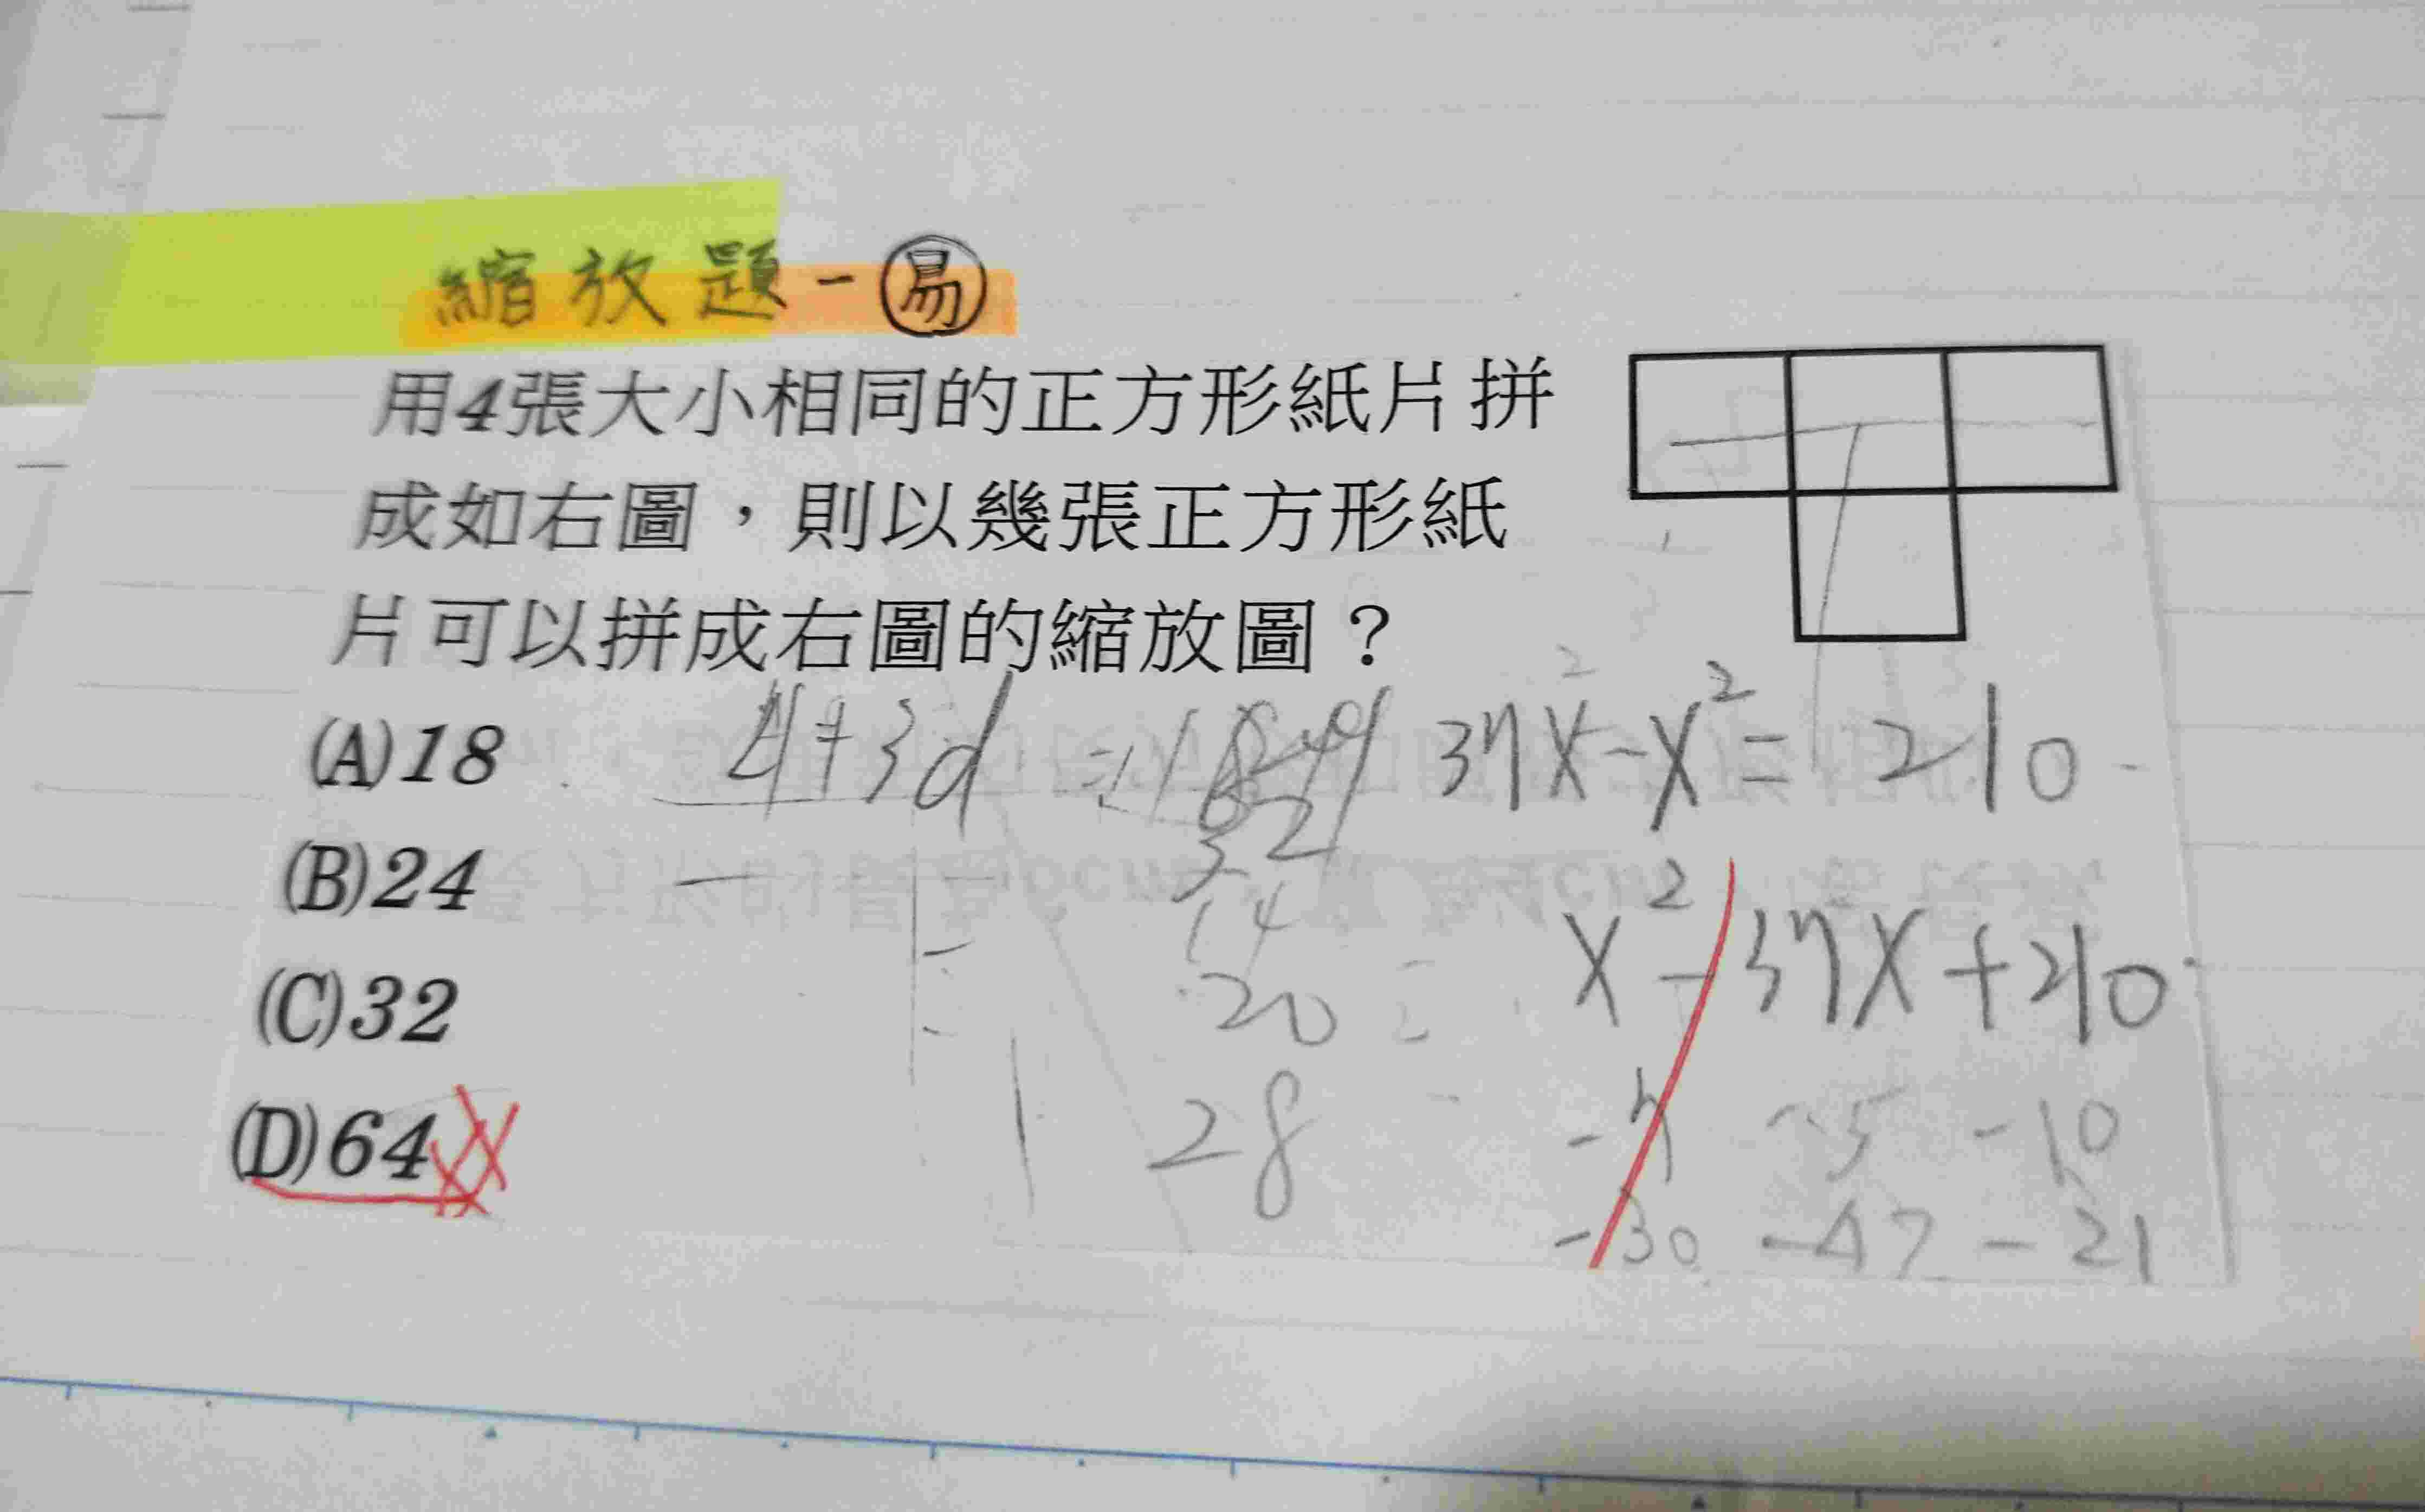 縮放題-易
用4張大小相同的正方形紙片拼
成如右圖,則以幾張正方形紙
片可以拼成右圖的縮放圖?
(A)18
(B)24
(C)32
(D)64
4+3d =
37x-x²= 210
x²-37x+210
14
20
28
-7 -5 -10
-30 -42 -21